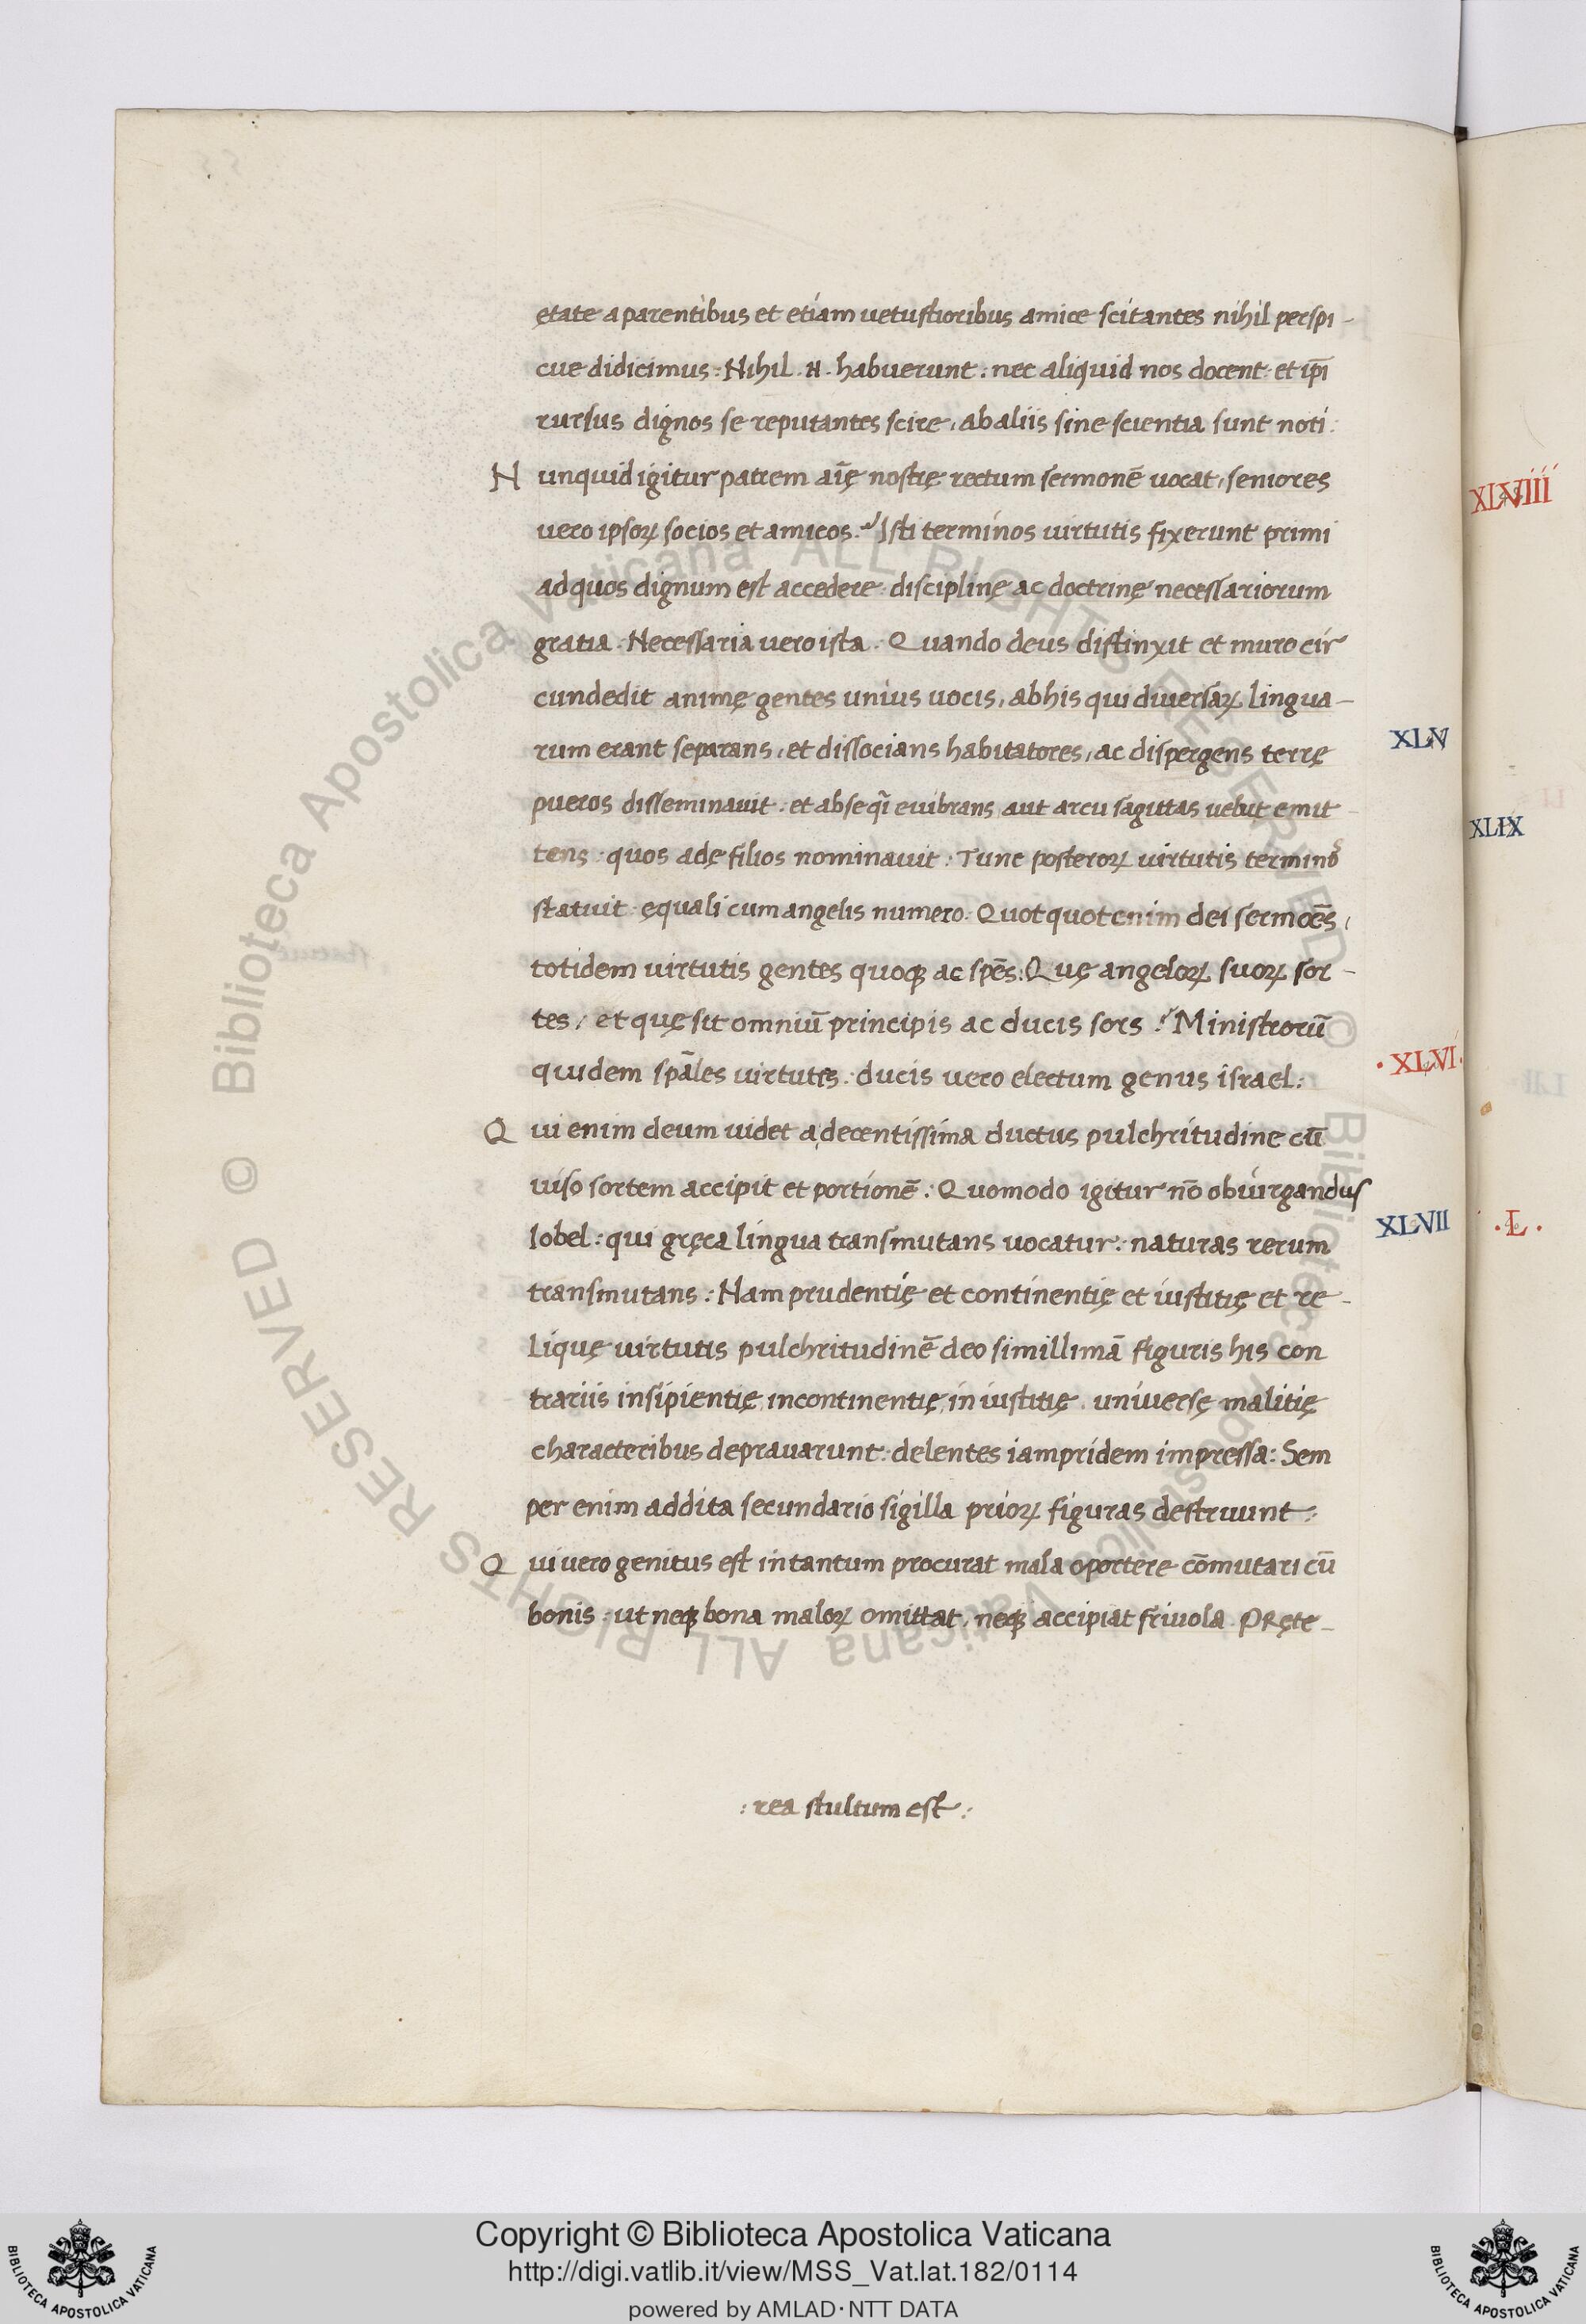 ętate a parentibus et etiam uetustioribus amice scitantes nihil perspi-
cue didicimus: Nihil .n. habuerunt: nec aliquid nos docent: et ip̄i
rursus dignos se reputantes scire, ab aliis sine scientia sunt noti:
Nunquid igitur patrem aı̄ę nostrę rectum sermonē uocat, seniores
vero ipsoꝝ socios et amicos? Isti terminos uirtutis fixerunt primi
ad quos dignum est accedere: disciplinę ac doctrinę necessariorum
gratia. Necessaria uero ista. Quando deus distinxit et muro cir
cundedit animę gentes unius uocis, ab his qui diuersaꝝ lingua-
rum erant separans, et dissocians habitatores, ac dispergens terrę
XLV
pueros disseminauit: et abse qı̄ euibrans aut arcu sagittas uelut emit-
tens: quos adę filios nominauit: Tunc posteroꝝ uirtutis terminos
statuit: ęquali cum angelis numero. Quotquot enim dei sermōes,
totidem uirtutis gentes quoqꝫ ac spēs: Quę angeloꝝ suoꝝ sor-
tes, et quę sit omniū principis ac ducis sors? Ministrorū
quidem spāles uirtutes: ducis uero electum genus israel:
·XLVI·
Qui enim deum uidet a decentissima ductus pulchritudine cū
uiso sortem accipit et portionē: Quomodo igitur nō obiurgandus
Iobel: qui gręca lingua transmutans uocatur: naturas rerum
XLVII
transmutans: Nam prudentię et continentię et iustitię et re-
liquę uirtutis pulchritudinē deo simillimā figuris his con
trariis insipientię incontinentię, in iustitię, uniuersę malitię
characteribus deprauarunt: delentes iampridem impressa: Sem
per enim addita secundario sigilla prioꝝ figuras destruunt:
Qui uero genitus est in tantum procurat mala oportere cōmutari cū
bonis: ut neqꝫ bona maloꝝ omittat, neqꝫ accipiat friuola. PRęte-
: rea stultum est :
XLVIIII
XLIX
.L.
Copyright © Biblioteca Apostolica Vaticana
http://digi.vatlib.it/view/MSS_Vat.lat.182/0114
powered by AMLAD·NTT DATA
BIBLIOTECA APOSTOLICA VATICANA
BIBLIOTECA APOSTOLICA VATICANA
© Biblioteca Apostolica Vaticana ALL RIGHTS RESERVED © Biblioteca Apostolica Vaticana ALL RIGHTS RESERVED